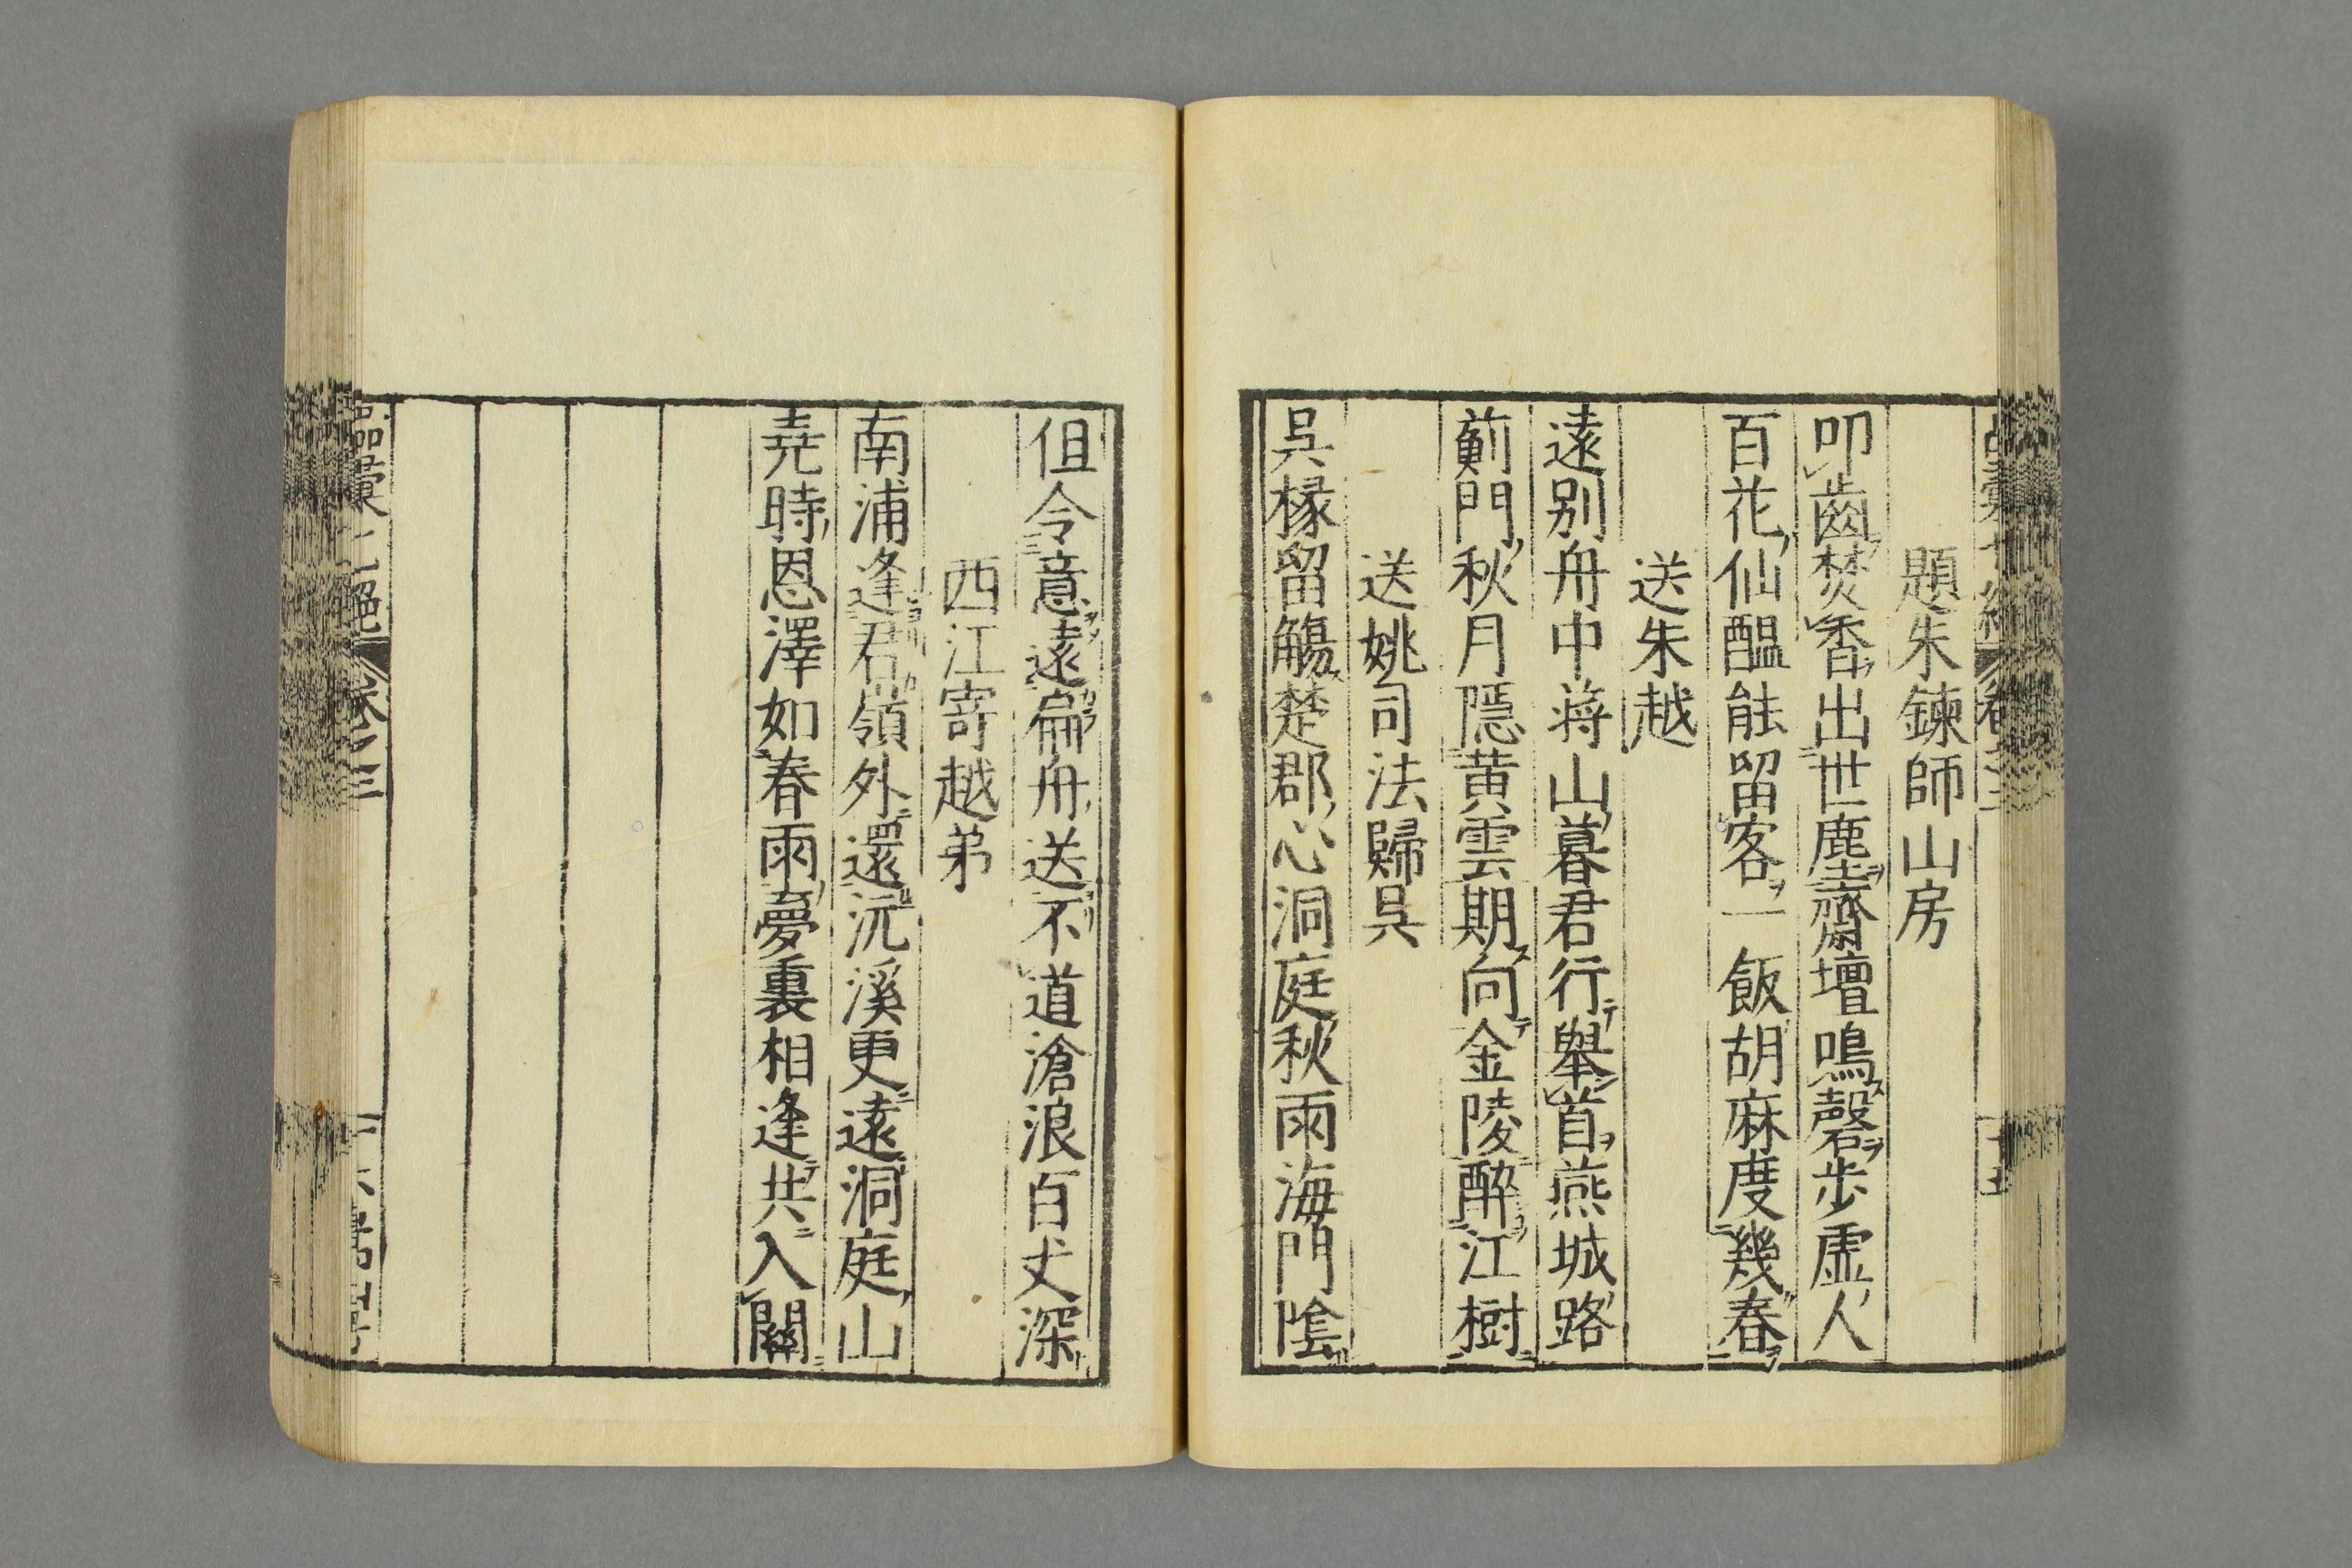 題朱鍊師山房
叩齒焚香出世塵齋壇鳴磬步虛人
百花仙醞能留客一飯胡麻度幾春
送朱越
遠別舟中蒋山暮君行舉首燕城路
薊門秋月隱黄雲期向金陵醉江樹
送姚司法歸吳
吳椽留觴楚郡心洞庭秋雨海門陰
但令意遠扁舟送不道滄浪百丈深
西江寄越弟
南浦逢君嶺外還沅溪更遠洞庭山
尭時恩澤如春雨夢裏相逢共入關